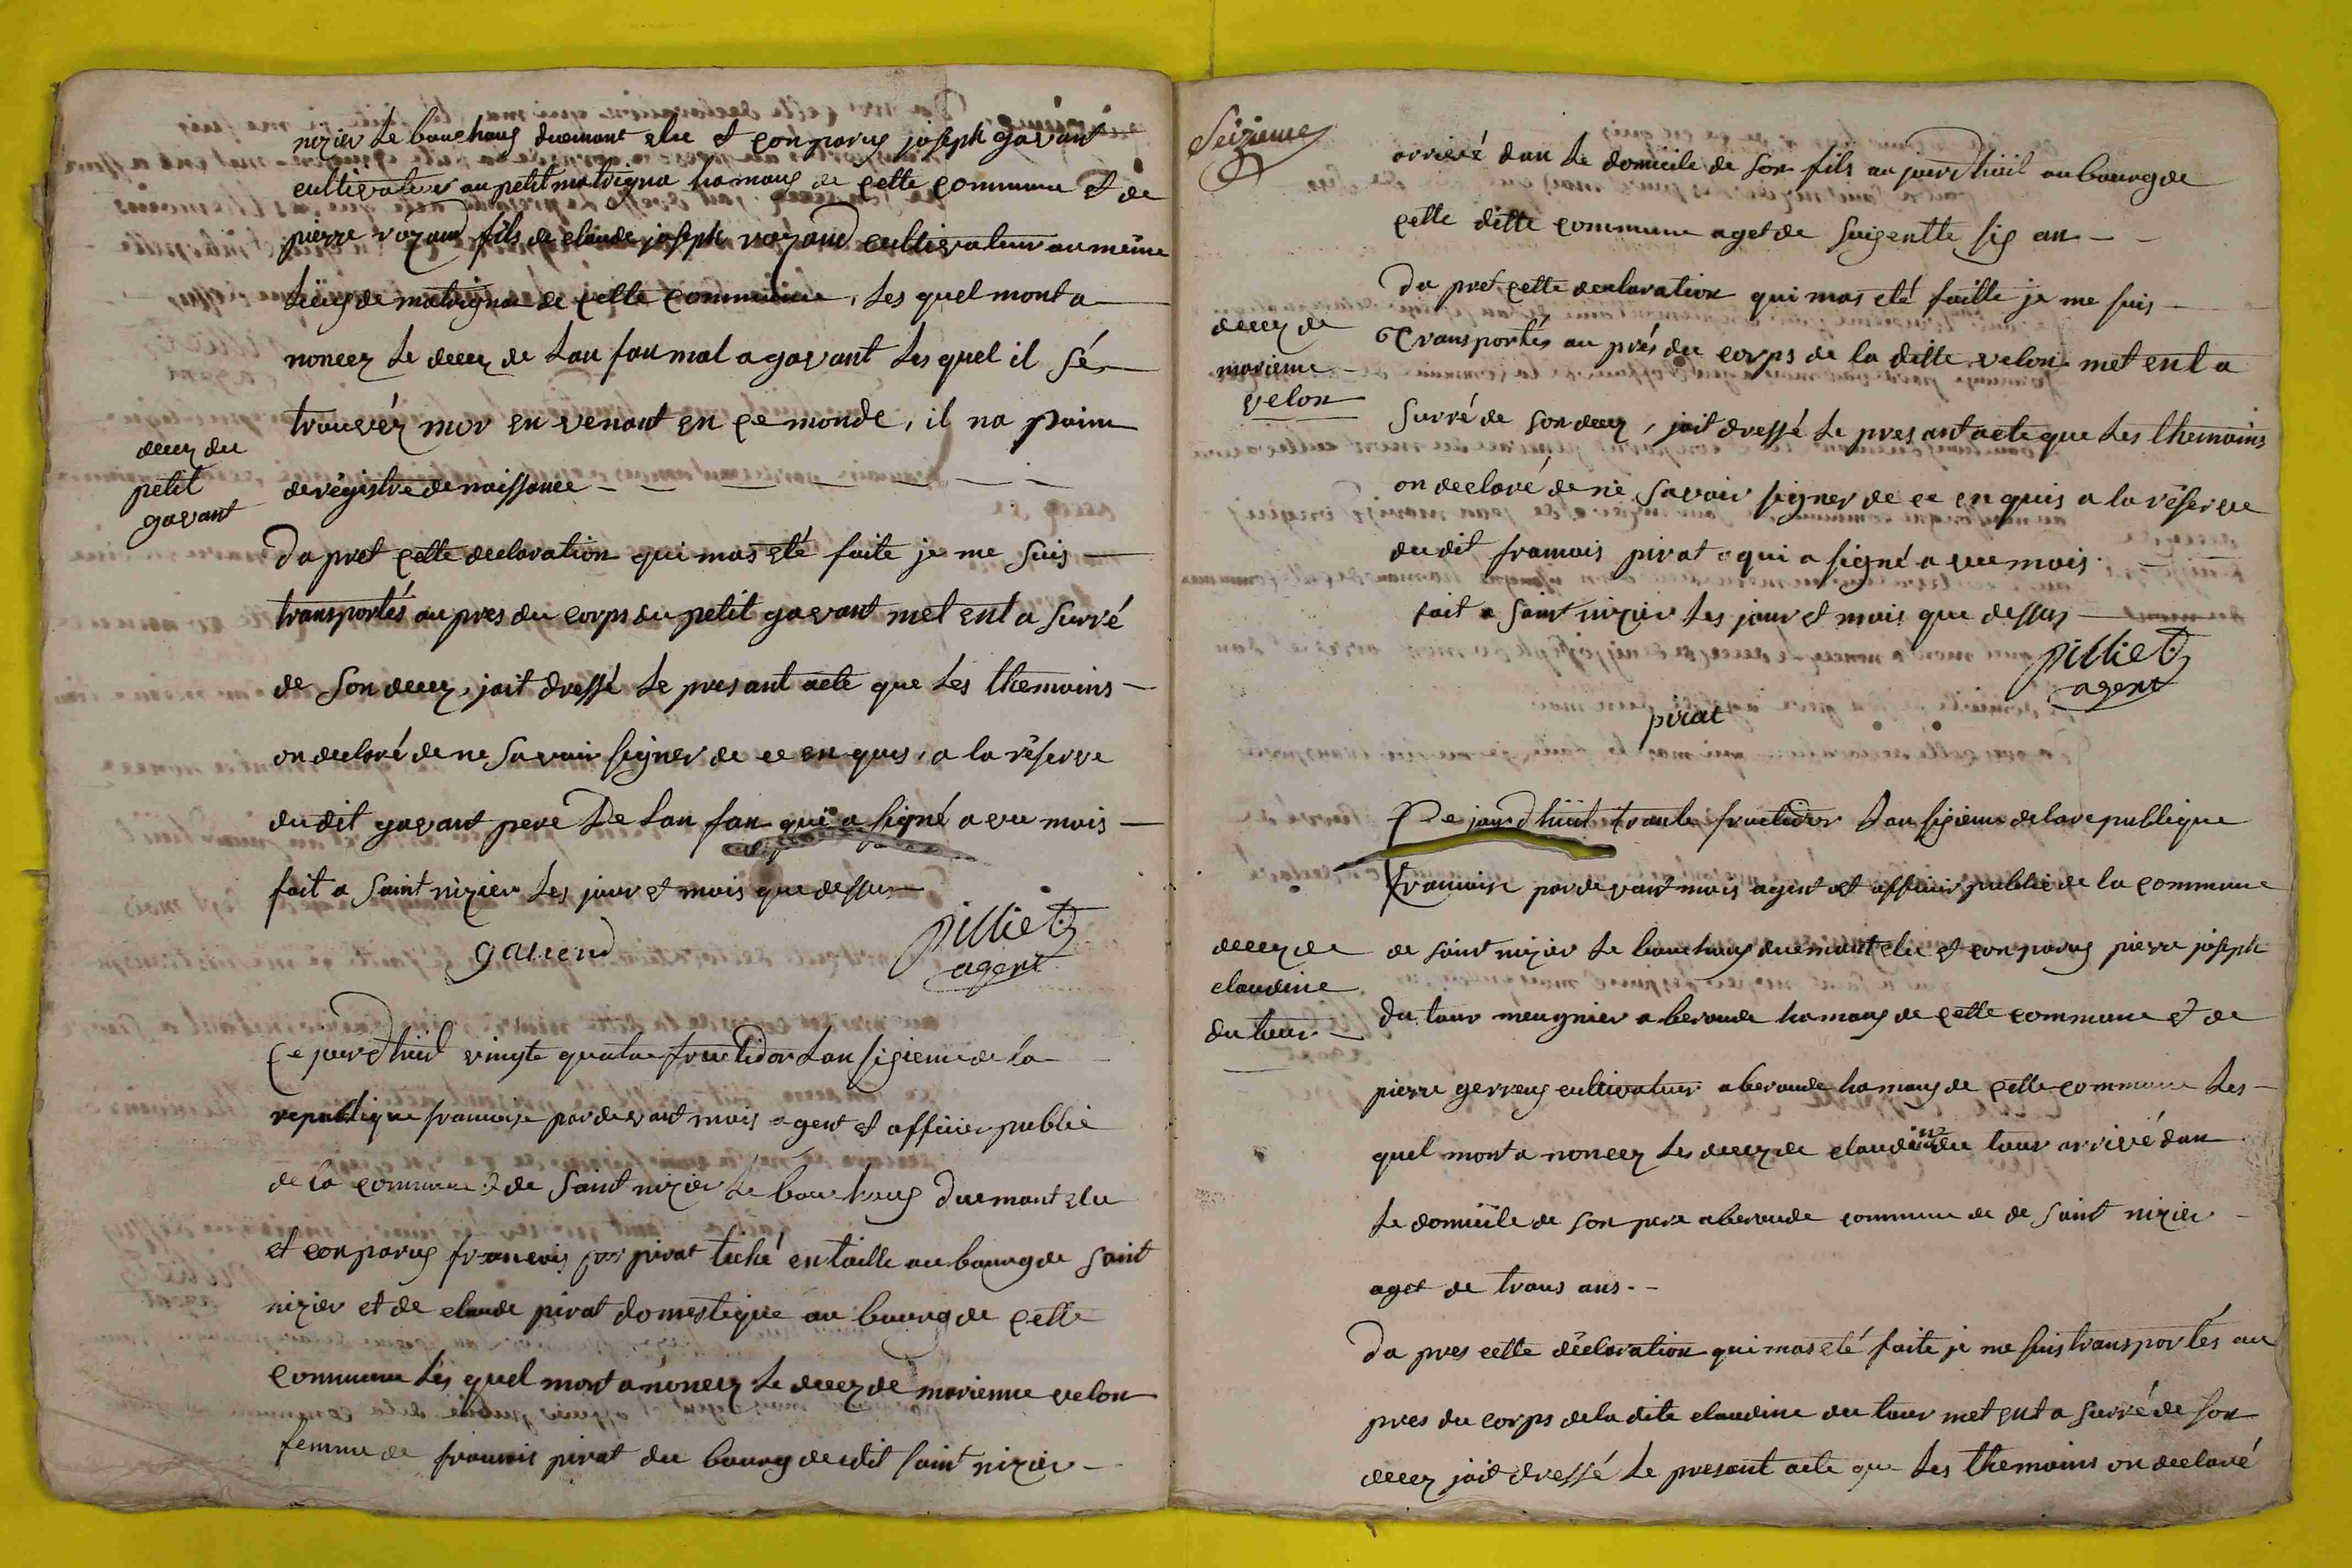 nizier le bouchoug duemant elu et conparug joseph gavant
cultivateur au petit matrigna hamaug de cette commune et de
pierre vozaud fils de claude joseph vozaud cultivateur au même
lieug de matrigna de cette commune, les quel mont a
noncez le decez de lan fan mal a gavant les quel il sé
trouvéz mor en venant en ce monde, il na poin
de régistre de naissance
decez du
petit
gavant
Da pret cette declaration qui mas eté faite je me suis
transportés au pres du corps du petit gavant met ent a surré
de son decez, jait dressé le presant acte que les themoins
on declaré de ne savoir signer de ce en ques, a la réserve
du dit gavant pere de lan fan qui a signé avec mois
fait a saint nizier les jour et mois que dessus
gauend
pilliet
agent
Ce jourdhuit vingte quatre fructidor lan sizieme de la
republique francoise par devant mois agent et officier public
de la commune de saint nizier le bouchoug duemant elu
et conparug francois pirat taché en taille au bourg de saint
nizier et de claude pirat domestique au bourg de cette
commune les quel mont a noncez le decez de marienne velon
femme de francois pirat du bourg dudit saint nizier
Seizieme
arrivé dan le domicile de son fils au jourdhuit au bourg de
cette ditte commune aget de soigentte sig an
Da pret cette declaration qui mas eté faitte je me suis
decez de
marienne
velon
transportés au prés du corps de la ditte velon met ent a
surré de son decez, jait dressé le presant acte que les themoins
on declaré de ne savoir signer de ce en quis a la réserve
du dit francois pirat qui a signé avec mois
fait a saint nizier les jour et mois que dessus
pilliet
agent
pirat
Ce jourdhuit trante fructidor lan sizieme de la republique
francoise par devant mois agent et officier public de la commune
decez de
claudine
du tour
de saint nizier le bouchoug duemant elu et conparug pierre joseph
du tour meugnier a beroude hamaug de cette commune et de
pierre gerreug cultivateur a beroude hamaug de cette commune les
quel mont a noncez les decez de claudine du tour arrivé dan
le domicile de son pere a beroude commune de de saint nizier
aget de trous ans
Da pres cette déclaration qui mas eté faite je me suis transportés au
pres du corps de la dite claudine du tour met ent a surré de son
decez jait dressé le presant acte que les themoins on declaré